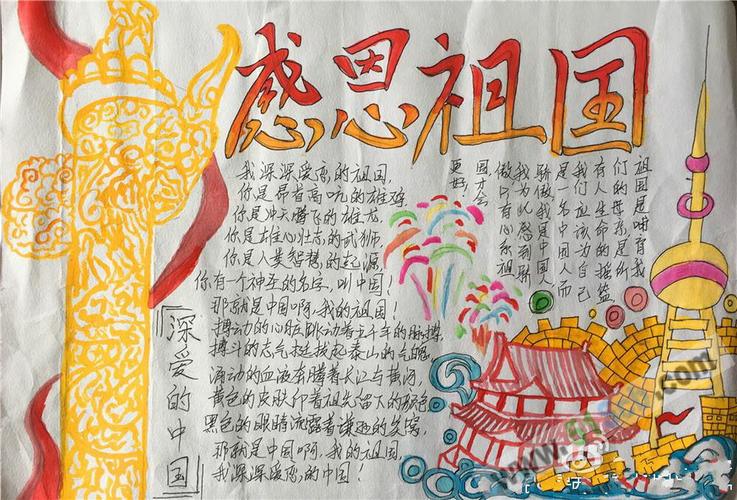 感恩祖国
我深深爱恋的祖国,
你是昂首高吭的雄鸡
你是冲天腾飞的雄龙
你是雄心壮志的武狮
你是人类智慧的起源,
你有一个神圣的名字,叫中国!
那就是中国啊,我的祖国!
搏动的心脏跳动着五千年的脉搏,
搏斗的志气挺拔起泰山的气魄,
涌动的血液奔腾着长江与黄河,
黄色的皮肤印着祖先留下的颜色,
黑色的眼睛流露着谦逊的笑窝,
那就是中国啊,我的祖国,
我深深爱恋的中国!
深爱的中国
祖国是哺育我
们的母亲,是所
有人生命的摇篮
我们应该为自己
是一名中国人而
骄傲,我是中国人
我为此感到骄
傲,只有心系祖
国,才会
更好!